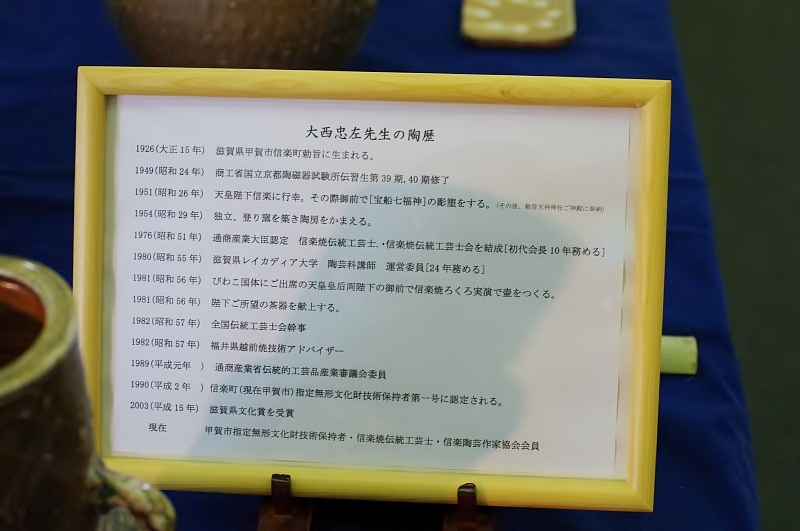 大西忠左先生の陶歴
1926(大正15年) 滋賀県甲賀市信楽町勅旨に生まれる。
1949(昭和24年) 商工省国立京都陶磁器試験所伝習生第39期,40期修了
1951(昭和26年) 天皇陛下信楽に行幸。その際御前で[宝船七福神]の彫塑をする。(その後、勅旨天神神社ご神殿に奉納)
1954(昭和29年) 独立、登り窯を築き陶房をかまえる。
1976(昭和51年) 通商産業大臣認定 信楽焼伝統工芸士.・信楽焼伝統工芸士会を結成[初代会長10年務める]
1980(昭和55年) 滋賀県レイカディア大学 陶芸科講師 運営委員[24年務める]
1981(昭和56年) びわこ国体にご出席の天皇皇后両陛下の御前で信楽焼ろくろ実演で壷をつくる。
1981(昭和56年) 陛下ご所望の茶器を献上する。
1982(昭和57年) 全国伝統工芸士会幹事
1982(昭和57年) 福井県越前焼技術アドバイザー
1989(平成元年 ) 通商産業省伝統的工芸品産業審議会委員
1990(平成2年 ) 信楽町(現在甲賀市)指定無形文化財技術保持者第一号に認定される。
2003(平成15年) 滋賀県文化賞を受賞
現在 甲賀市指定無形文化財技術保持者・信楽焼伝統工芸士・信楽陶芸作家協会会員